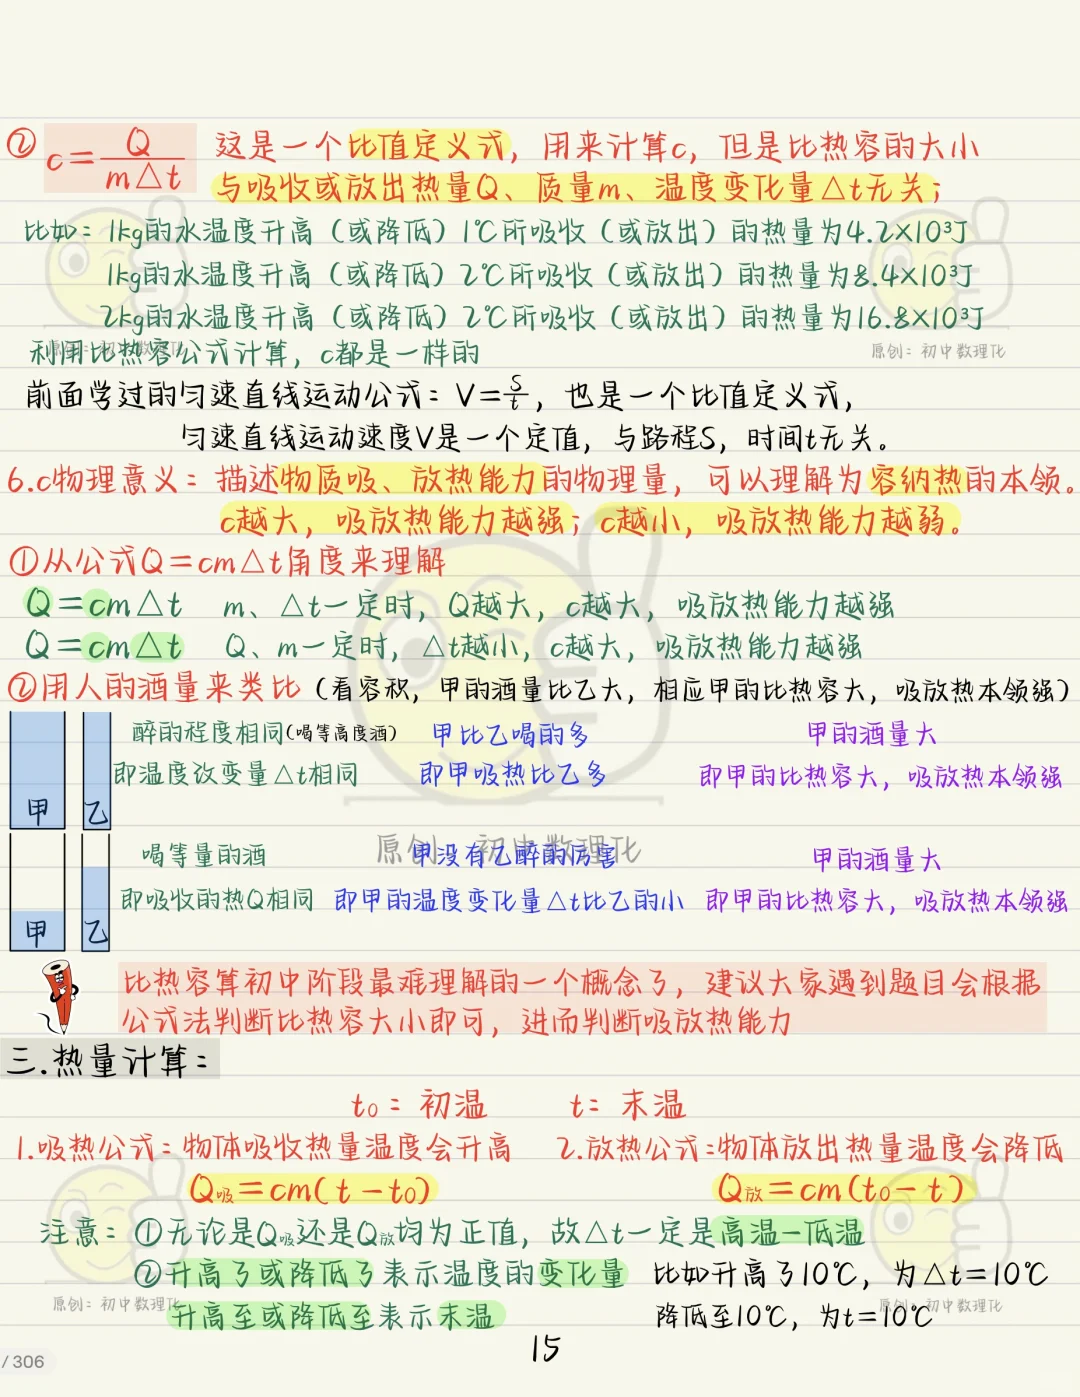 ② c=Q/m△t 这是一个比值定义式，用来计算c，但是比热容的大小
与吸收或放出热量Q、质量m、温度变化量△t无关；
比如：1kg的水温度升高（或降低）1℃所吸收（或放出）的热量为4.2×10³J
1kg的水温度升高（或降低）2℃所吸收（或放出）的热量为8.4×10³J
2kg的水温度升高（或降低）2℃所吸收（或放出）的热量为16.8×10³J
利用比热容公式计算，c都是一样的
原创：初中数理化
原创：初中数理化
前面学过的匀速直线运动公式：V=S/t，也是一个比值定义式，
匀速直线运动速度V是一个定值，与路程S，时间t无关。
6.c物理意义：描述物质吸、放热能力的物理量，可以理解为容纳热的本领。
c越大，吸放热能力越强；c越小，吸放热能力越弱。
①从公式Q=cm△t角度来理解
Q=cm△t m、△t一定时，Q越大，c越大，吸放热能力越强
Q=cm△t Q、m一定时，△t越小，c越大，吸放热能力越强
②用人的酒量来类比（看容积，甲的酒量比乙大，相应甲的比热容大，吸放热本领强）
醉的程度相同（喝等高度酒） 甲比乙喝的多 甲的酒量大
即温度改变量△t相同 即甲吸热比乙多 即甲的比热容大，吸放热本领强
甲 乙
原创：初中数理化
喝等量的酒 甲没有乙醉的厉害 甲的酒量大
即吸收的热Q相同 即甲的温度变化量△t比乙的小 即甲的比热容大，吸放热本领强
甲 乙
比热容算初中阶段最难理解的一个概念了，建议大家遇到题目会根据
公式法判断比热容大小即可，进而判断吸放热能力
三.热量计算：
t₀：初温 t：末温
1.吸热公式：物体吸收热量温度会升高 2.放热公式：物体放出热量温度会降低
Q吸=cm(t-t₀) Q放=cm(t₀-t)
注意：①无论是Q吸还是Q放均为正值，故△t一定是高温-低温
②升高了或降低了表示温度的变化量 比如升高了10℃，为△t=10℃
原创：初中数理化
原创：初中数理化
升高至或降低至表示末温 降低至10℃，为t=10℃
15
/ 306